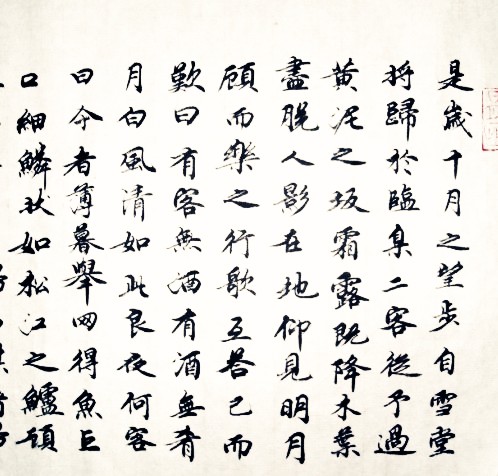 是歲十月之望步自雪堂
將歸於臨皋二客從予過
黃泥之坂霜露既降木葉
盡脫人影在地仰見明月
顧而樂之行歌互答已而
歎曰有客無酒有酒無肴
月白風清如此良夜何客
曰今者薄暮舉网得魚巨
口細鱗狀如松江之鱸顧